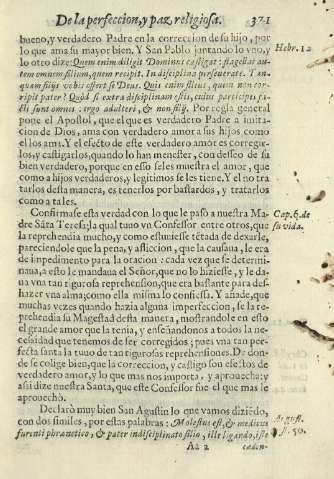 De la perfeccion, y paz religiosa. 371
bueno, y verdadero Padre en la correccion de su hijo, por
lo que ama su mayor bien, Y San Pablo juntando lo vno, y
lo otro dize: Quem enim diligit Dominus castigat: flagellat au-
tem omnem filium, quem recipit. In disciplina perseuerate. Tan-
quam filijs vobis offert se Deus. Quis enim filius, quem non cor-
ripit pater? Quod si extra disciplinam estis, cuius participes fa-
cti sunt omnes: ergo adulteri, & non filij. Por regla general
pone el Apostol, que el que es verdadero Padre a imita-
cion de Dios, ama con verdadero amor a sus hijos como
el los ama. Y el efecto de este verdadero amor es corregir-
los, y castigarlos, quando lo han menester, con desseo de su
bien verdadero, porque en esso se les muestra el amor, que
como a hijos verdaderos, y legitimos se les tiene. Y el no tra-
tarlos desta manera, es tenerlos por bastardos, y tratarlos
como a tales.
Hebr. 12
Confirmase esta verdad con lo que le passò a nuestra Ma-
dre Sãta Teresa; la qual tuuo vn Confessor entre otros, que
la reprehendia mucho, y como estuuiesse tẽtada de dexarle,
pareciendole que la pena, y afliccion, que la causaua, le era
de impedimento para la oracion: cada vez que se determi-
naua, a esto le mandaua el Señor, que no lo hiziesse, y le da-
ua vna tan rigurosa reprehension, que era bastante para des-
hazer vna alma; como ella misma lo confiessa. Y añade, que
muchas vezes quando hazia alguna imperfeccion, se la re-
prehendia su Magestad desta manera, mostrandole en esto
el grande amor que la tenia, y enseñandonos a todos la ne-
cessidad que tenemos de ser corregidos; pues vna tan per-
fecta santa la tuuo de tan rigurosas reprehensiones. De don-
de se colige bien, que la correccion, y castigo son efectos de
verdadero amor, y lo que mas nos importa, y aprouecha: y
assi dize nuestra Santa, que este Confessor fue el que mas le
aprouechò.
Cap. 6. de
su vida.
Declarò muy bien San Agustin lo que vamos diziẽdo,
con dos similes, por estas palabras: Molestus est, & medicus
furenti phrenetico, & pater indisciplinato filio, ille ligando, iste
August.
50.
Aa 2 cæden-